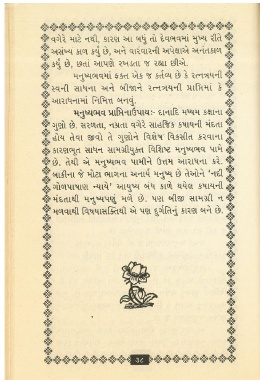 વગેરે માટે નથી, કારણ આ બધું તો દેવભવમાં મુખ્ય રીતે
અસંખ્ય કાળ કર્યું છે, અને વારંવારની અપેક્ષાએ અનંતકાળ
કર્યું છે, છતાં આપણે રખડતા જ રહ્યા છીએ.
મનુષ્યભવમાં ફક્ત એક જ કર્તવ્ય છે કે રત્નત્રયની
સ્વની સાધના અને બીજાને રત્નત્રયની પ્રાપ્તિમાં કે
આરાધનામાં નિમિત્ત બનવું.
મનુષ્યભવ પ્રાપ્તિનાઉપાયઃ- દાનાદિ મધ્યમ કક્ષાના
ગુણો છે. સરળતા, નમ્રતા વગેરે સાહજિક કષાયની મંદતા
હોય તેવા જીવો તે ગુણોને વિશેષ વિકસીત કરવાના
કારણભૂત સાધન સામગ્રીયુક્ત વિશિષ્ટ મનુષ્યભવ પામે
છે. તેથી એ મનુષ્યભવ પામીને ઉત્તમ આરાધના કરે.
બાકીના જે મોટા ભાગના અનાર્ય મનુષ્ય છે તેઓને ‘નદી
ગોળપાષાણ ન્યાયે’ આયુષ્ય બંધ કાળે થયેલ કષાયની
મંદતાથી મનુષ્યપણું મળે છે. પણ બીજી સામગ્રી ન
મળવાથી વિષયાસક્તિથી એ પણ દુર્ગતિનું કારણ બને છે.
૩૮